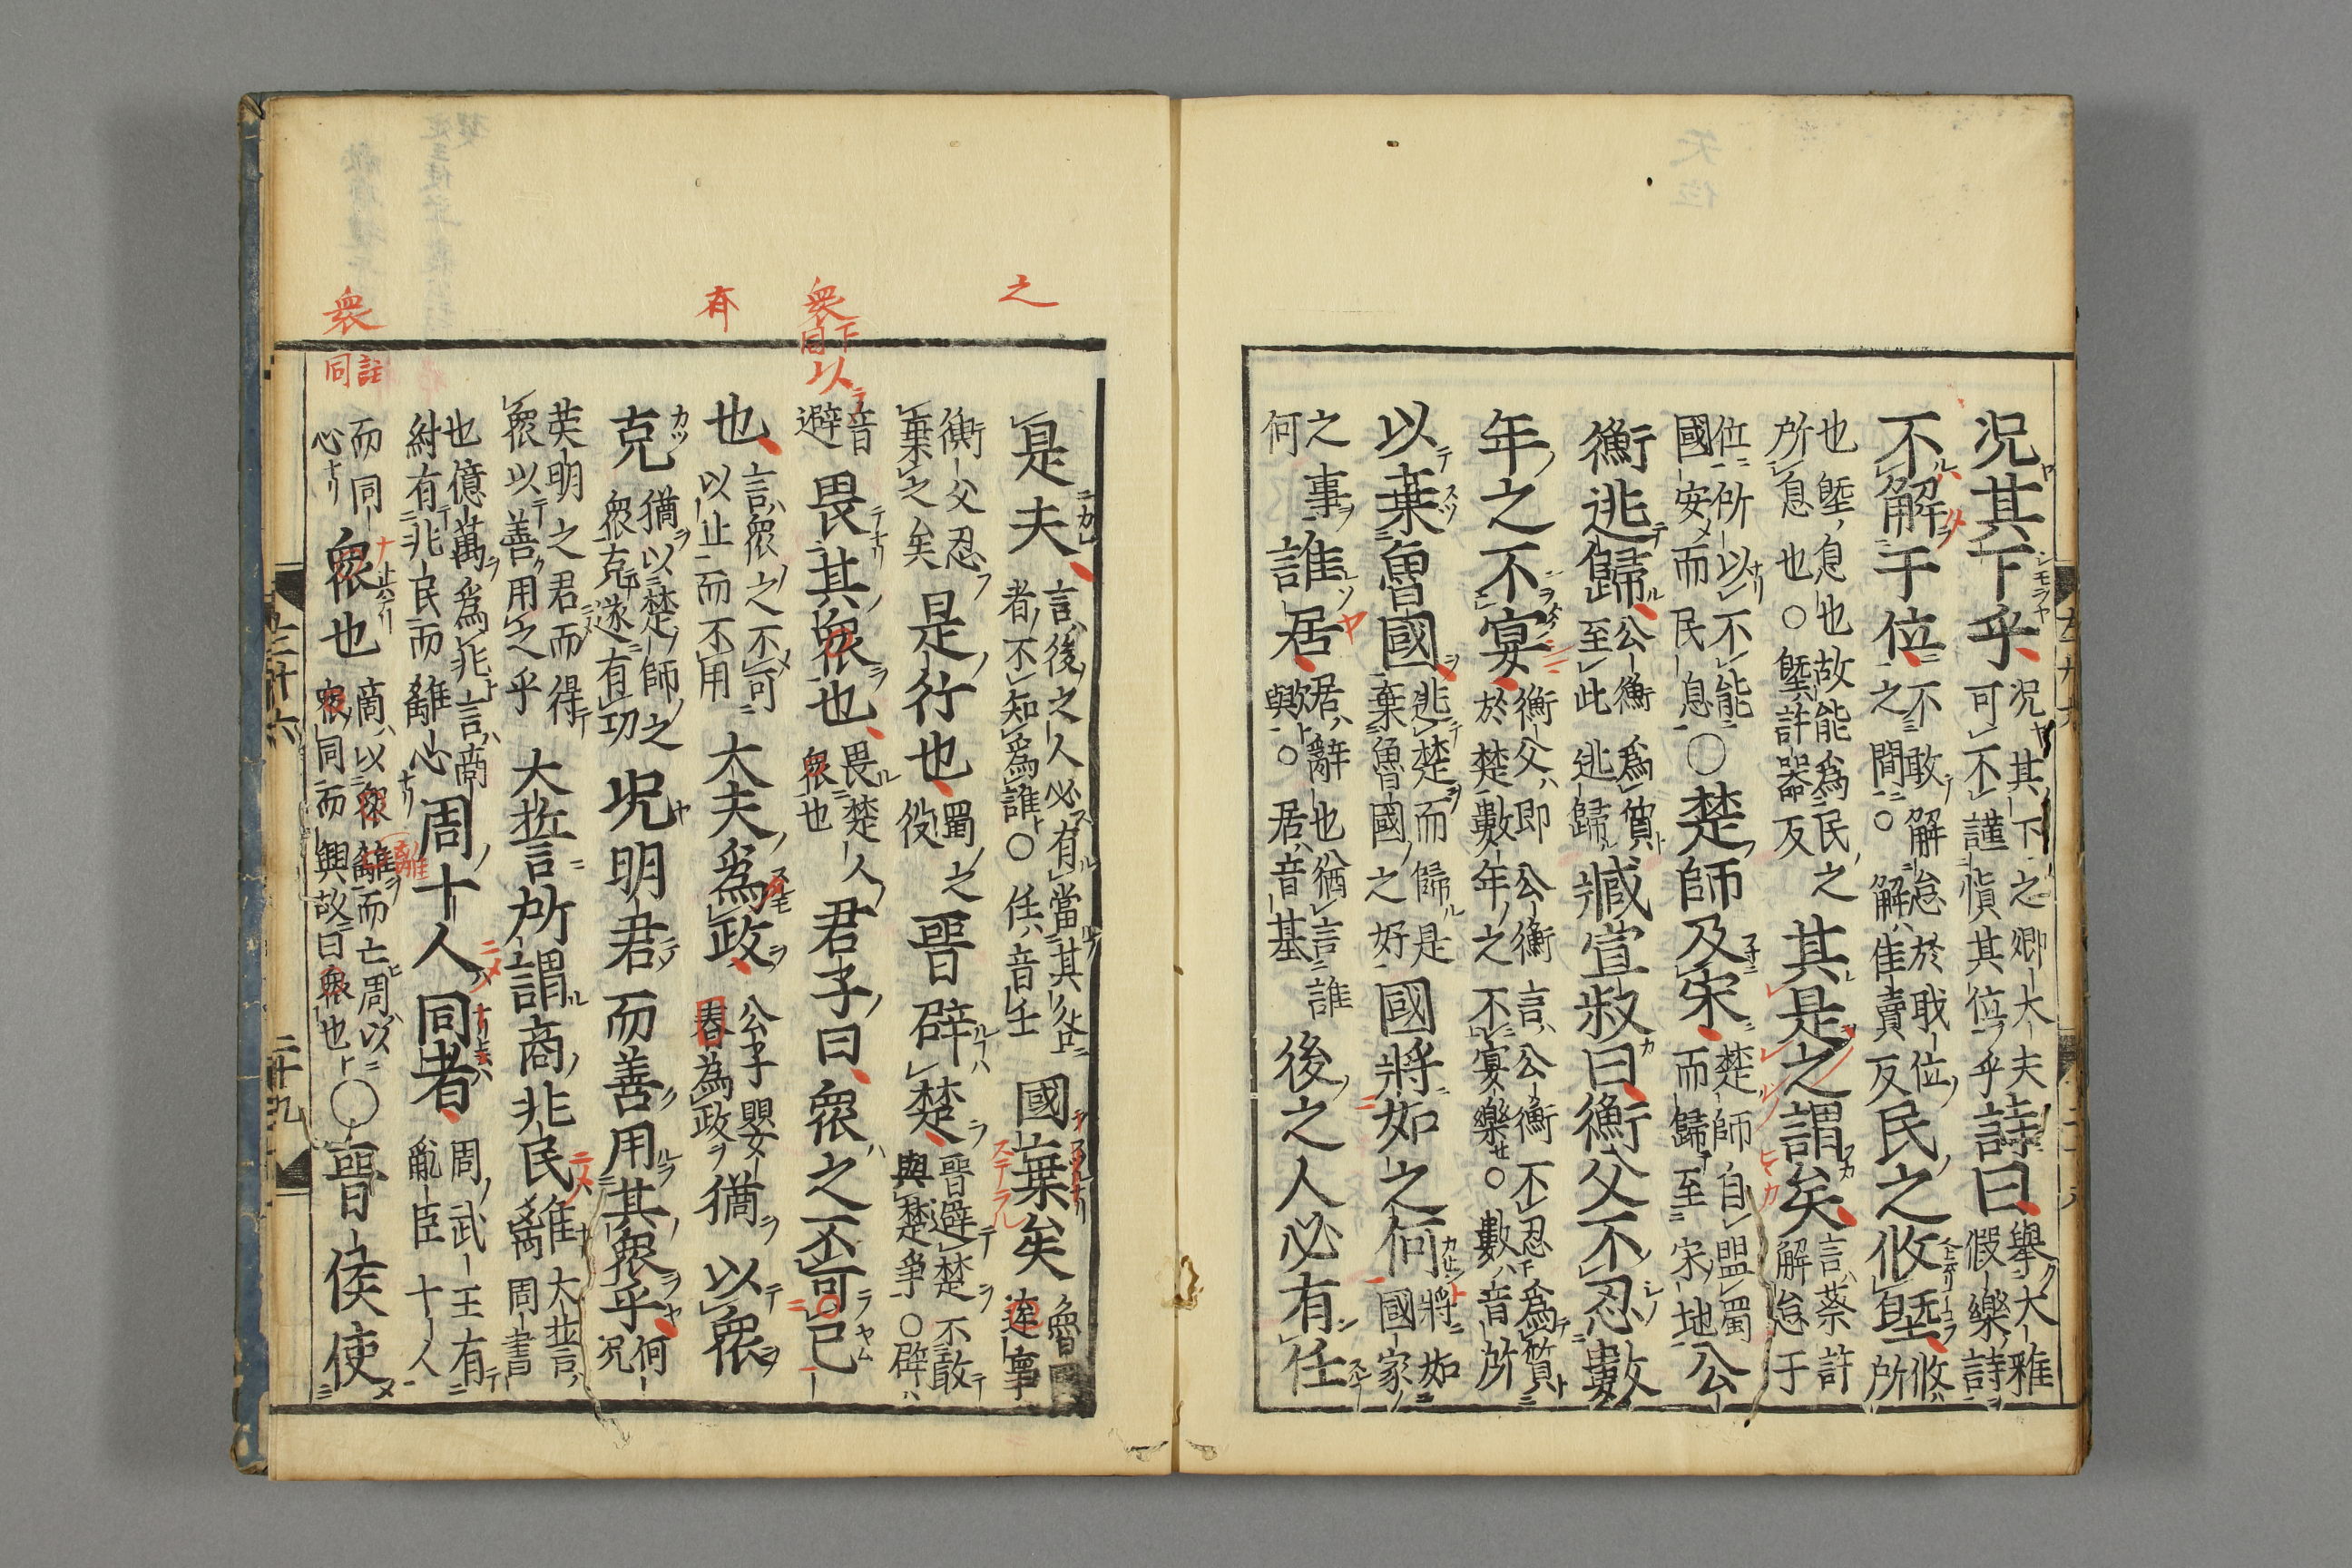 況其下乎況其下之卿大夫可不謹慎其位乎詩曰擧大雅假樂詩
不解于位不敢解怠於戢位之間○解佳賣反民之攸墍攸所
也墍息也故能爲民之所息也○墍許器反其是之謂矣言蔡許解怠于
位所以不能國安而民息○楚師及宋楚師自盟蜀而歸至宋地公
衡逃歸公衡爲質至此逃歸臧宣叔曰衡父不忍數
年之不宴衡父即公衡言公衡不忍爲質於楚數年之不宴樂○數音所
以棄魯國逃楚而歸是棄魯國之好國將如之何將如國家
之事何誰居居辭也猶言誰歟○居音基後之人必有任
之
是夫言後之人必有當其咎者不知爲誰○任音壬國棄矣魯國事
衡父忍棄之矣是行也蜀之役晉辟楚晉避楚不敢與楚爭○辟
衆下同
以
音避畏其衆也畏楚人衆也君子曰衆之不可已
有
也言衆之不可以止而不用大夫爲政公子嬰爲政猶以衆
克猶以楚師之衆克遂有功況明君而善用其衆乎何況
英明之君而得衆以善用之乎大誓所謂商兆民離大誓周書
也億萬爲兆言商紂有兆民而離心周十人同者周武王有亂臣十人
衆註同
而同心衆也商以衆離而亡周以衆同而興故曰衆也○晉侯使
二十九